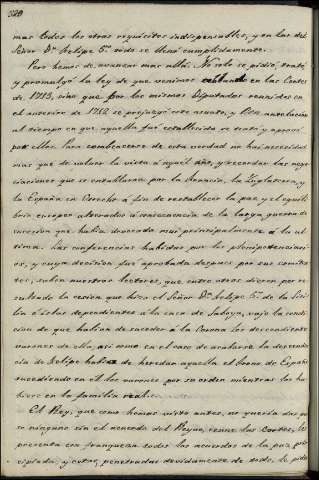 520
mas todos los otros requisitos indispensables, y en las del
Señor Dn. Felipe 5º todo se llenó cumplidamente.
Pero hemos de avanzar mas allá. No solo se pidió, trató,
y promulgó la ley de que venimos en las Cortes
de 1713, sino que por los mismos Diputados reunidos en
el anterior de 1712 se prejuzgó este asunto, y con antelacion
al tiempo en que aquella fué establecida se trató y aprovó
por ellos. Para convencerse de esta verdad no hai necesidad
mas que de volver la vista á aquel año, y recordar las nego-
ciaciones que se entablaron por la Francia, la Inglaterra, y
la España en Utrecht á fin de restablecer la paz y el equili-
brio europeo alterados á consecuencia de la larga guerra de
sucesion que habia devorado mui principalmente á la ul-
tima. Las conferencias habidas por los plenipotenciari-
os, y cuya decision fué aprobada despues por sus comiten-
tes, saben nuestros lectores, que entre otros dieron por re-
sultado la cesion que hizo el Señor Dn. Felipe 5º de la Sici-
lia é islas dependientes á la casa de Saboya, vajo la condi-
cion de que habian de suceder á la Corona los descendientes
varones de ella, asi como en el caso de acabarse la descenden-
cia de Felipe habian de heredar aquella el trono de España
sucediendo en él los varones por su orden mientras los hu-
biere en la familia real.
El Rey, que como hemos visto antes, no queria dar pa-
so ninguno sin el acuerdo del Reyno, reune las Cortes, les
presenta con franqueza todos los acuerdos de la paz
y estas, penetradas devidamente de todo, le pide